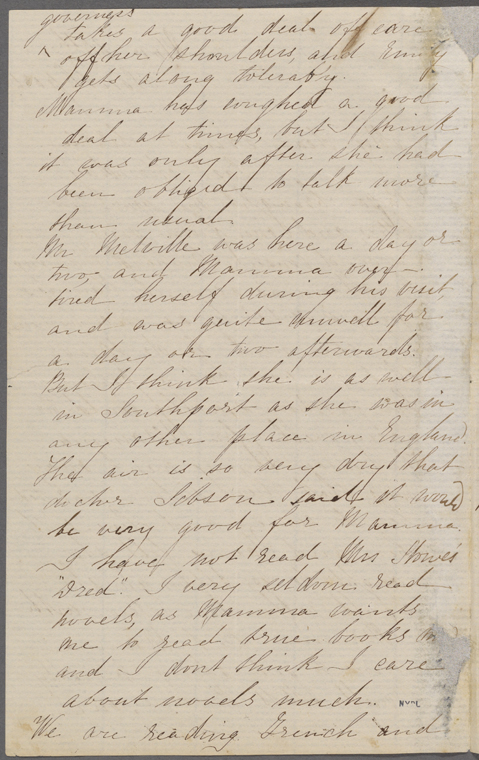 governess
takes a good deal of care
off her shoulders, and Emily
gets along tolerably.
Mamma has coughed a good
deal at times, but I think
it was only after she had
been obliged to talk more
than usual.
Mr Melville was here a day or
two, and Mamma over-
tired herself during his visit,
and was quite unwell for
a day or two afterwards.
But I think she is as well
in Southport as she was in
any other place in England.
The air is so very dry that
doctor said it would
be very good for Mamma.
I have not read Mrs Stowe's
"Dred". I very seldom read
novels, as Mamma wants
me to read true books
and I dont think I care
about novels much.
NYPL
We are reading French and